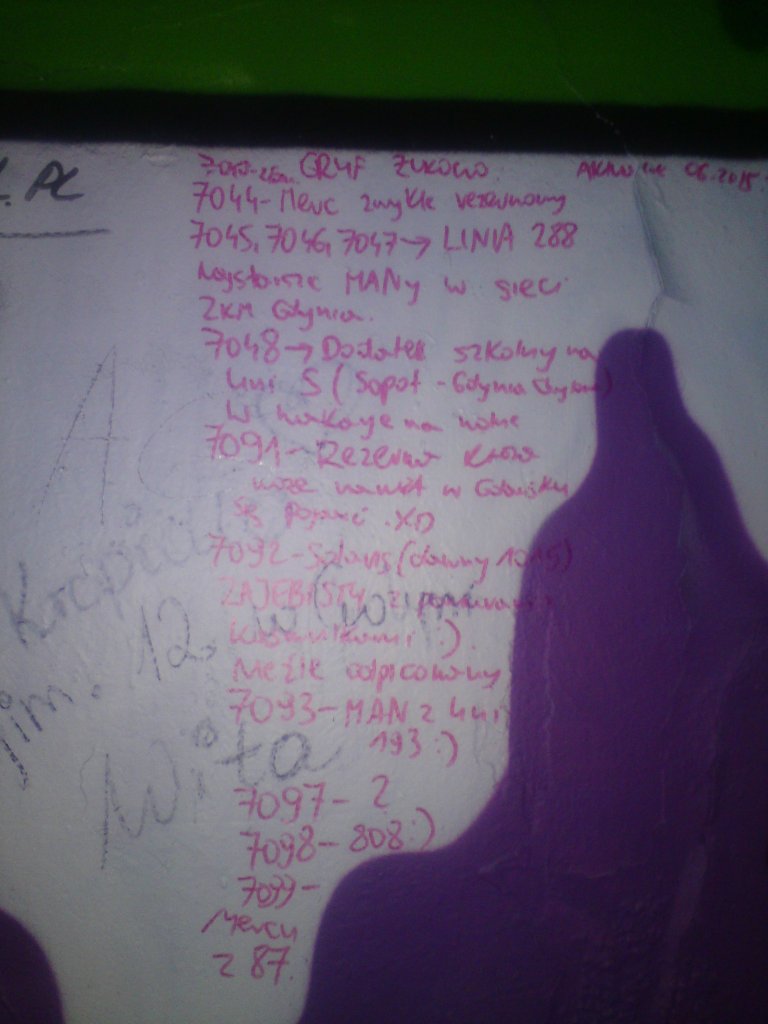 GRYF ŻUKOWO 06.2015.
7044- Merc zwykle rezerwowy
7045, 7046, 7047 → LINIA 288
Najstarsze MANy w sieci
ZKM Gdynia.
7048 → Dodatek szkolny na
linii S (Sopot - Gdynia
W wakacje na
7091- Rezerwa która
może nawet w Gdańsku
się pojawi .XD
7092- Solaris (dawny 1015)
ZAJEBISTY z
kasownikami :).
Nieźle odpicowany
7093- MAN z linii
193 :)
7097- ?
7098- 808 :)
7099-
Mercu
z 87.
. PC
AC
Kacper
im. 12.
Wita